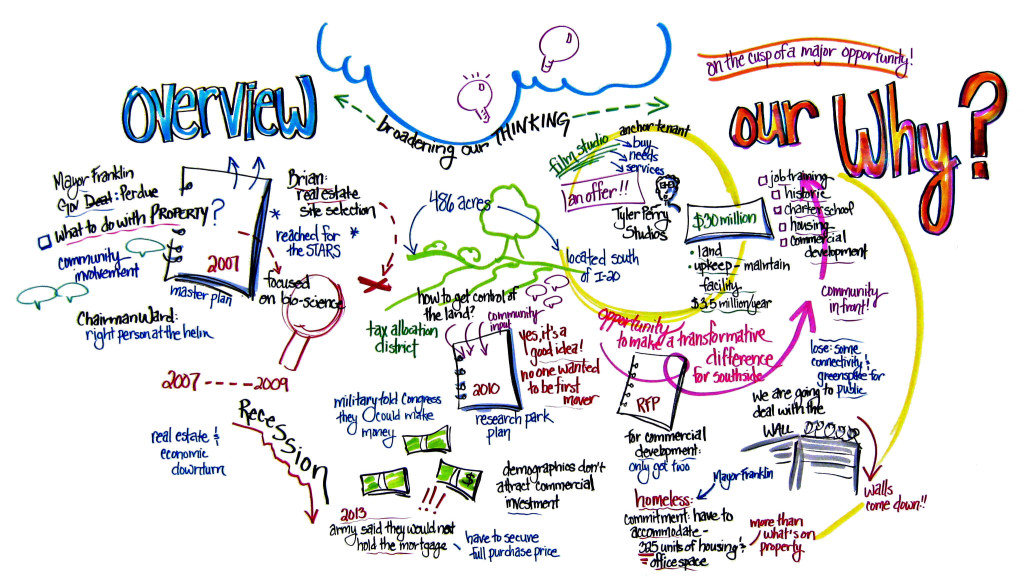 OVERVIEW
broadening our THINKING
on the cusp of a major opportunity!
our Why?
Mayor Franklin
Gov Deal: Perdue
what to do with PROPERTY?
community
involvement
2007
master plan
Chairman Ward:
right person at the helm
Brian:
real estate
site selection
* reached for *
the STARS
focused
on bio-science
2007 ---- 2009
RECESSION
real estate &
economic
downturn
486 acres
located south
of I-20
how to get control of
the land?
tax allocation
district
community
input
2010
research park
plan
yes, it's a
good idea!
no one wanted
to be first
mover
military told Congress
they could make
money
$
demographics don't
attract commercial
investment
2013
army said they would not
hold the mortgage
have to secure
full purchase price
film studio
anchor tenant
buy
needs
services
an offer!!
Tyler Perry
Studios
$30 million
• land
• upkeep - maintain
facility
$3.5 million/year
opportunity
to make a transformative
difference
for southside
RFP
for commercial
development:
only got two
Mayor Franklin
homeless:
commitment: have to
accommodate -
325 units of housing &
office space
more than
what's on
property
job training
historic
charter school
housing
commercial
development
community
in front!
lose: some
connectivity &
greenspace for
public
we are going to
deal with the
WALL
walls
come down!!